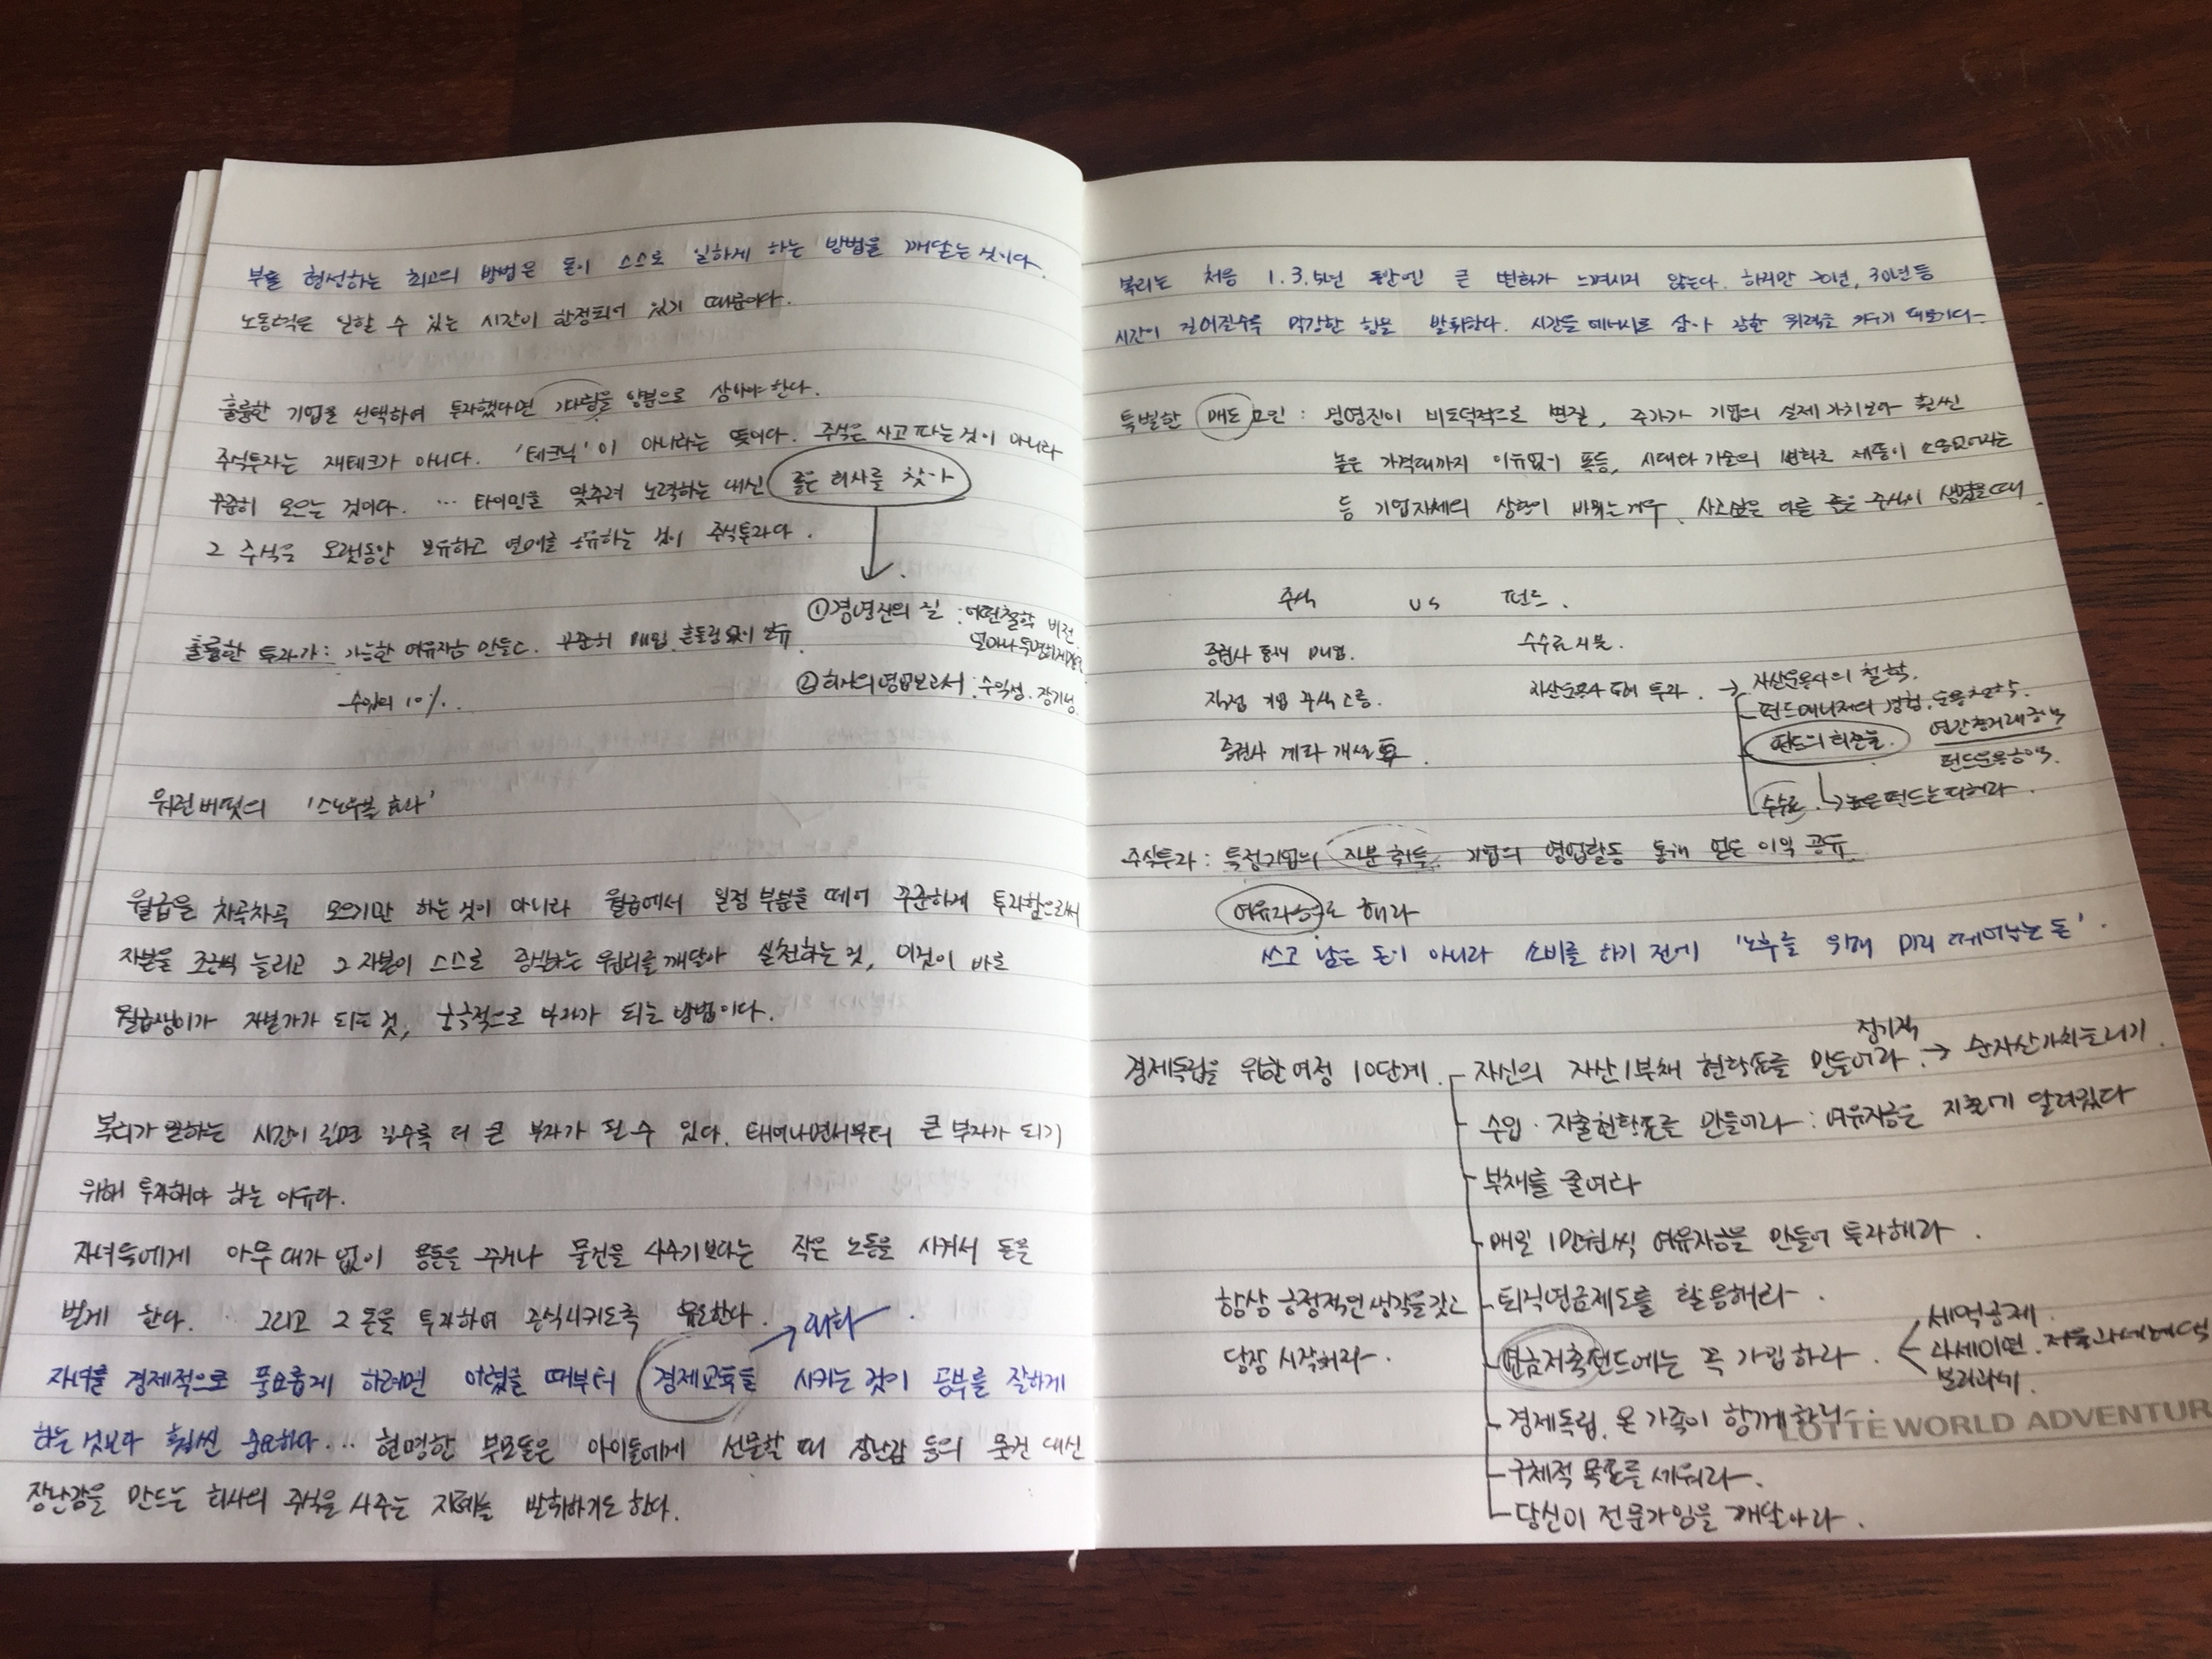 부를 형성하는 최고의 방법은 돈이 스스로 일하게 하는 방법을 깨닫는 것이다.
노동력은 일할 수 있는 시간이 한정되어 있기 때문이다.
훌륭한 기업을 선택하여 투자했다면 기다림을 양분으로 삼아야 한다.
주식투자는 재테크가 아니다. '테크닉'이 아니라는 뜻이다. 주식은 사고 파는 것이 아니라
꾸준히 모으는 것이다. ... 타이밍을 맞추려 노력하는 대신 좋은 회사를 찾아
그 주식을 오랫동안 보유하고 열매를 공유하는 것이 주식투자다.
① 경영진의 질 : 어떤 철학 비전
얼마나 투명하게
② 회사의 영업보고서 : 수익성. 장기성
훌륭한 투자가 : 가능한 여유자금 만들고. 꾸준히 매입. 흔들림 없이 보유
수입의 10%.
워런버핏의 '스노우볼 효과'
월급을 차곡차곡 모으기만 하는 것이 아니라 월급에서 일정 부분을 떼어 꾸준하게 투자함으로써
자본을 조금씩 늘리고 그 자본이 스스로 증식하는 원리를 깨달아 실천하는 것, 이것이 바로
월급쟁이가 자본가가 되는 것, 궁극적으로 부자가 되는 방법이다.
복리가 일하는 시간이 길면 길수록 더 큰 부자가 될 수 있다. 태어나면서부터 큰 부자가 되기
위해 투자해야 하는 이유다.
자녀들에게 아무 대가 없이 용돈을 주거나 물건을 사주기보다는 작은 노동을 시켜서 돈을
벌게 한다. 그리고 그 돈을 투자하여 증식시키도록 유도한다.
대화
자녀를 경제적으로 풍요롭게 하려면 어렸을 때부터 경제교육을 시키는 것이 공부를 잘하게
하는 것보다 훨씬 중요하다... 현명한 부모들은 아이들에게 선물할 때 장난감 등의 물건 대신
장난감을 만드는 회사의 주식을 사주는 지혜를 발휘하기도 한다.
복리는 처음 1.3.5년 동안엔 큰 변화가 느껴지지 않는다. 하지만 20년, 30년 등
시간이 길어질수록 막강한 힘을 발휘한다. 시간을 에너지로 삼아 강한 위력을 키우기 때문이다.
특별한 매도 요인 : 경영진이 비도덕적으로 변질, 주가가 기업의 실제 가치보다 훨씬
높은 가격대까지 이유없이 폭등, 시대나 기술의 변화로 제품이 쓸모없어지는
등 기업자체의 상황이 바뀌는 경우. 사고싶은 다른 좋은 주식이 생겼을때
주식 VS 펀드.
증권사 통해 매입. 수수료 지불.
직접 기업 주식 고름. 자산운용사 통해 투자. → 자산운용사의 철학.
펀드매니저의 경험. 운용철학.
증권사 계좌 개설 펀드의 회전율. 연간총거래금액
펀드운용총액.
수수료. → 높은펀드는 피해라.
주식투자 : 특정기업의 지분 취득. 기업의 영업활동 통해 얻은 이익 공유
여유자금으로 해라
쓰고 남은 돈이 아니라 소비를 하기 전에 '노후를 위해 미리 떼어놓는 돈'.
정기적
경제독립을 위한 여정 10단계. 자신의 자산/부채 현황표를 만들어라. → 순자산가치 늘리기.
수입·지출현황표를 만들어라 : 여유자금은 지출에 달려있다
부채를 줄여라
매일 1만원씩 여유자금을 만들어 투자해라.
항상 긍정적인 생각을 갖고 퇴직연금제도를 활용해라.
당장 시작해라. 연금저축펀드에는 꼭 가입하라.
세액공제.
과세이연. 저율과세혜택
분리과세.
경제독립, 온 가족이 함께 하라.
LOTTE WORLD ADVENTUR
구체적 목표를 세워라.
당신이 전문가임을 깨달아라.